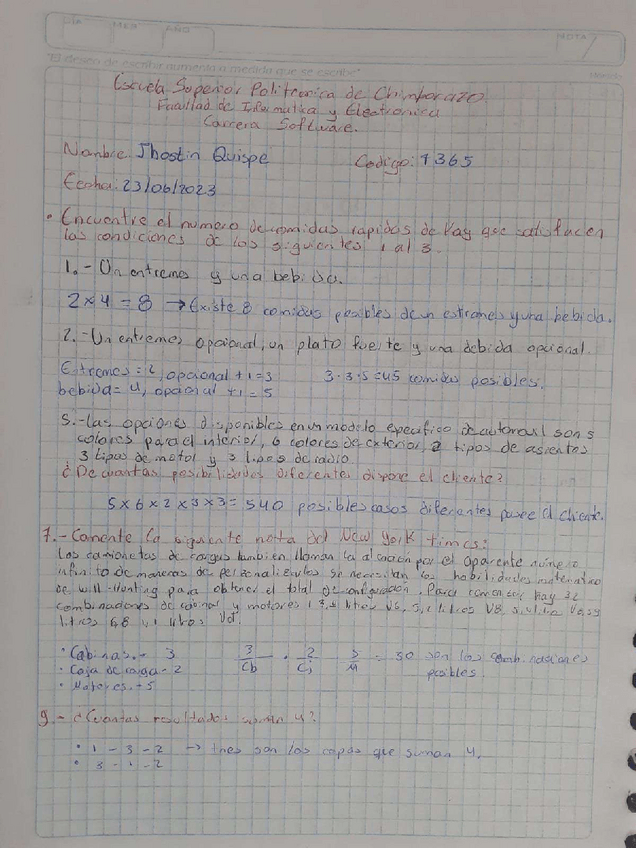 DIA MES AÑO NOTA
"El deseo de escribir aumenta a medida que se escribe"
Escuela Superior Politecnica de Chimborazo
Facultad de Informatica y Electronica
Carrera Software.
Nombre: Jhostin Quispe Codigo: 7365
Fecha: 23/06/2023
• Encuentre el numero de comidas rapidas de Kay que satisfacen
las condiciones de los siguientes 1 al 3.
1.- Un entremes y una bebida.
2 x 4 = 8 → Existe 8 comidas posibles de un y una bebida.
2.- Un entremes opcional, un plato fuerte y una bebida opcional.
Extremes = 2, opcional +1 = 3 3·3·5 = 45 comidas posibles.
bebida = 4, opcional +1 = 5
5.- las opciones disponibles en un modelo especifico de automovil son 5
colores para el interior, 6 colores de exterior, 2 tipos de asientos
3 tipos de motor y 3 tipos de radio
¿De cuantas posibilidades diferentes dispone el cliente?
5 x 6 x 2 x 3 x 3 = 540 posibles casos diferentes posee el cliente.
7.- Comente la siguiente nota del New York times:
Los camionetas de cargas tambien llaman la atencion por el aparente numero
infinito de maneras de se necesitan las habilidades
de will Hunting para obtener el total de configuracion. Para comenzar hay 32
combinaciones de cabinas y motores litros V6, litros V8,
litros
• Cabinas.- 3 3/Cb · 2/Cj 5/M = 30 son las combinaciones
• Caja de carga - 2 posibles.
• Motores.+5
9.- ¿Cuantas resultados suman 4?
• 1 - 3 - 2 → tres son las copas que suman 4.
• 3 - 1 - 2